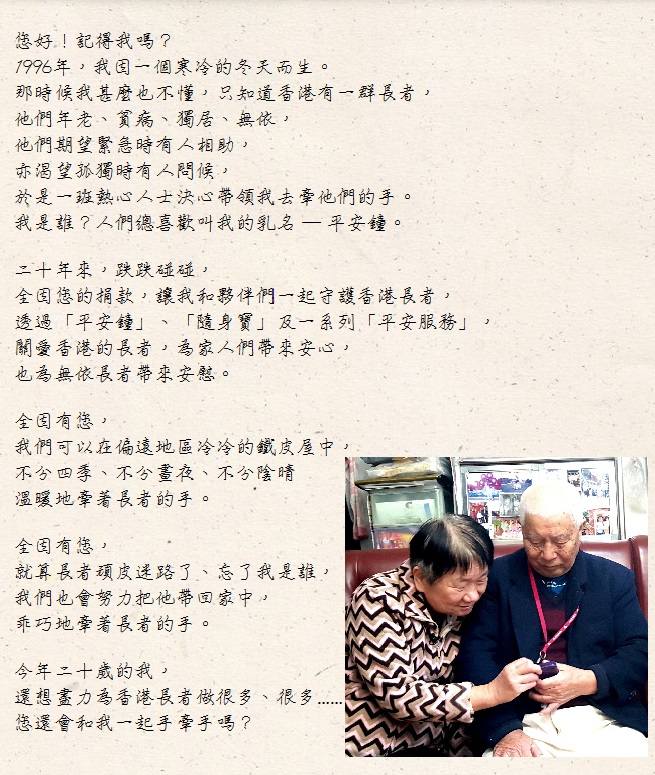 您好！記得我嗎？
1996年，我因一個寒冷的冬天而生。
那時候我甚麼也不懂，只知道香港有一群長者，
他們年老、貧病、獨居、無依，
他們期望緊急時有人相助，
亦渴望孤獨時有人問候，
於是一班熱心人士決心帶領我去牽他們的手。
我是誰？人們總喜歡叫我的乳名 — 平安鐘。
二十年來，跌跌碰碰，
全因您的捐款，讓我和夥伴們一起守護香港長者，
透過「平安鐘」、「隨身寶」及一系列「平安服務」，
關愛香港的長者，為家人們帶來安心，
也為無依長者帶來安慰。
全因有您，
我們可以在偏遠地區冷冷的鐵皮屋中，
不分四季、不分晝夜、不分陰晴
溫暖地牽著長者的手。
全因有您，
就算長者頑皮迷路了、忘了我是誰，
我們也會努力把他帶回家中，
乖巧地牽著長者的手。
今年二十歲的我，
還想盡力為香港長者做很多、很多......
您還會和我一起手牽手嗎？